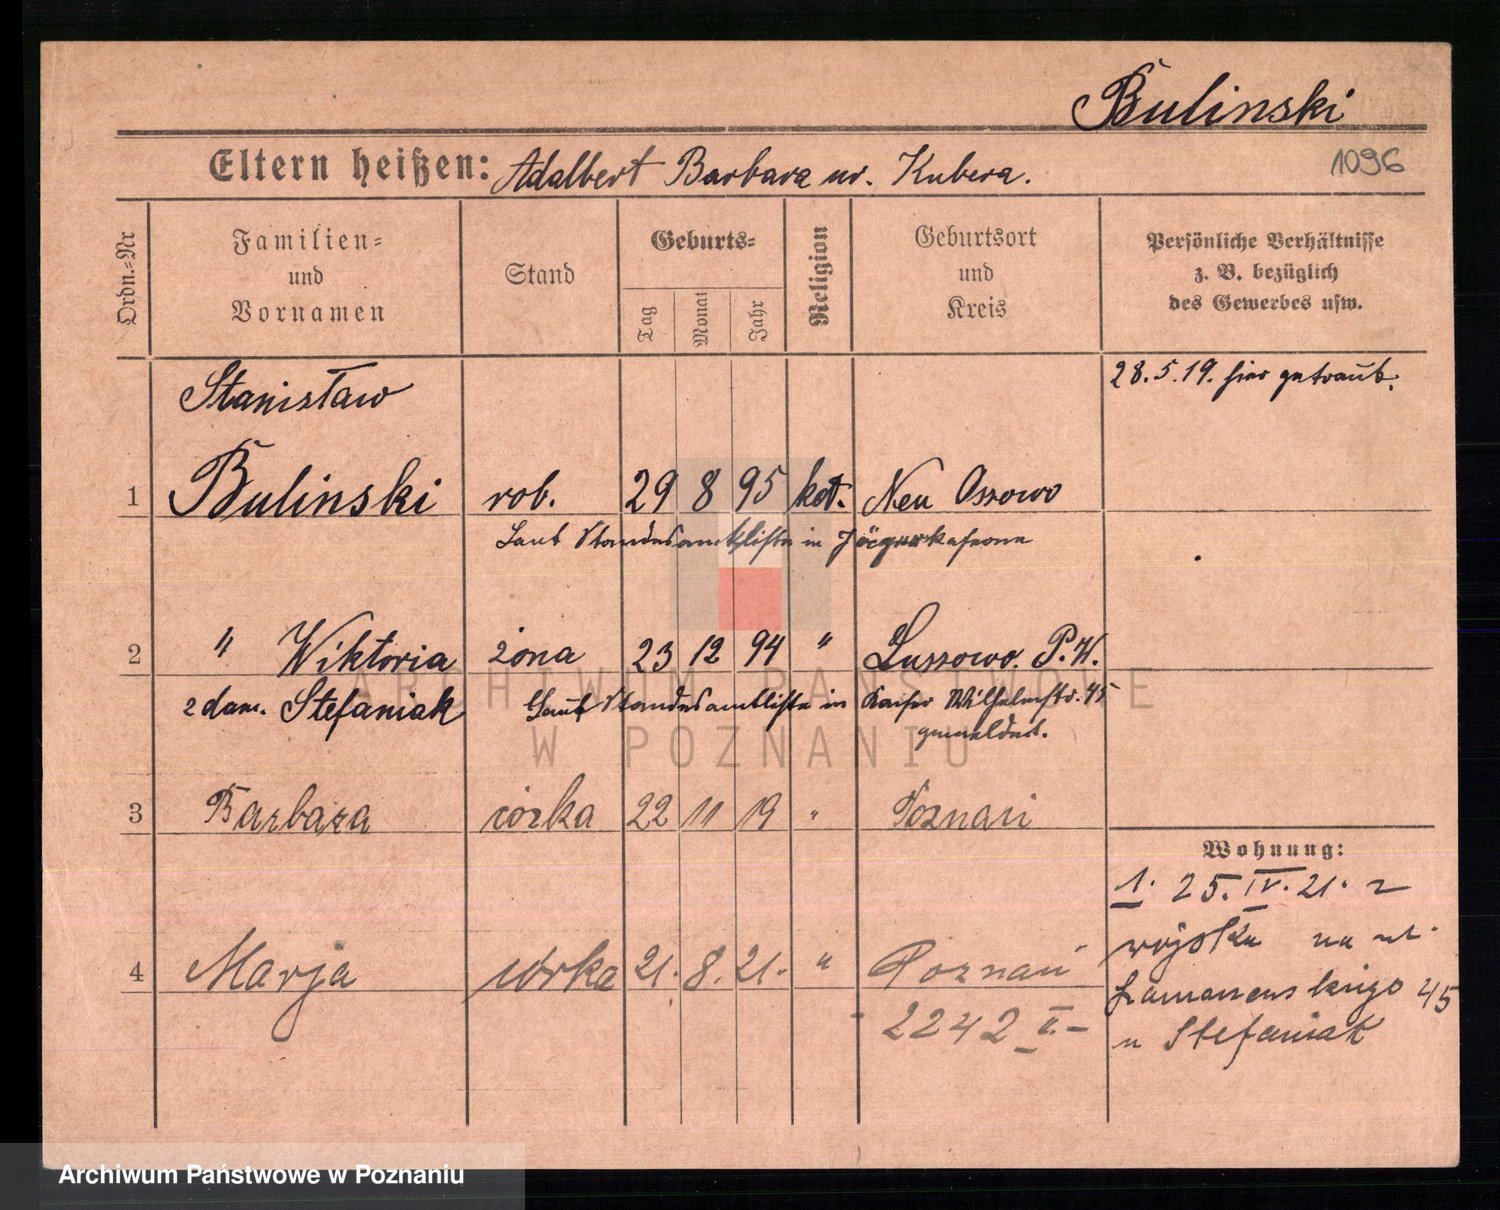 Bulinski
Eltern heißen: Adalbert Barbara ur. Kubera.
1096
Ordn.=Nr
Familien=
und
Vornamen
Stand
Geburts=
Tag
Monat
Jahr
Religion
Geburtsort
und
Kreis
Persönliche Verhältnisse
z. B. bezüglich
des Gewerbes usw.
28.5.19. hier getraut.
Stanisław
1 Bulinski rob. 29 8 95 kat. Neu Ossowo
Laut Standesamtsliste in Jägerkaserne
2 " Wiktoria żona 23 12 94 " Lussowo P.W.
z dom. Stefaniak Laut Standesamtsliste in Kaiser Wilhelmstr. 45
gemeldet.
3 Barbara córka 22 11 19 " Poznań
4 Marja córka 21. 8. 21. " Poznań
2242 V.-
Wohnung:
1. 25. IV. 21. z
wojska na ul.
45
u Stefaniak
ARCHIWUM PAŃSTWOWE
W POZNANIU
Archiwum Państwowe w Poznaniu